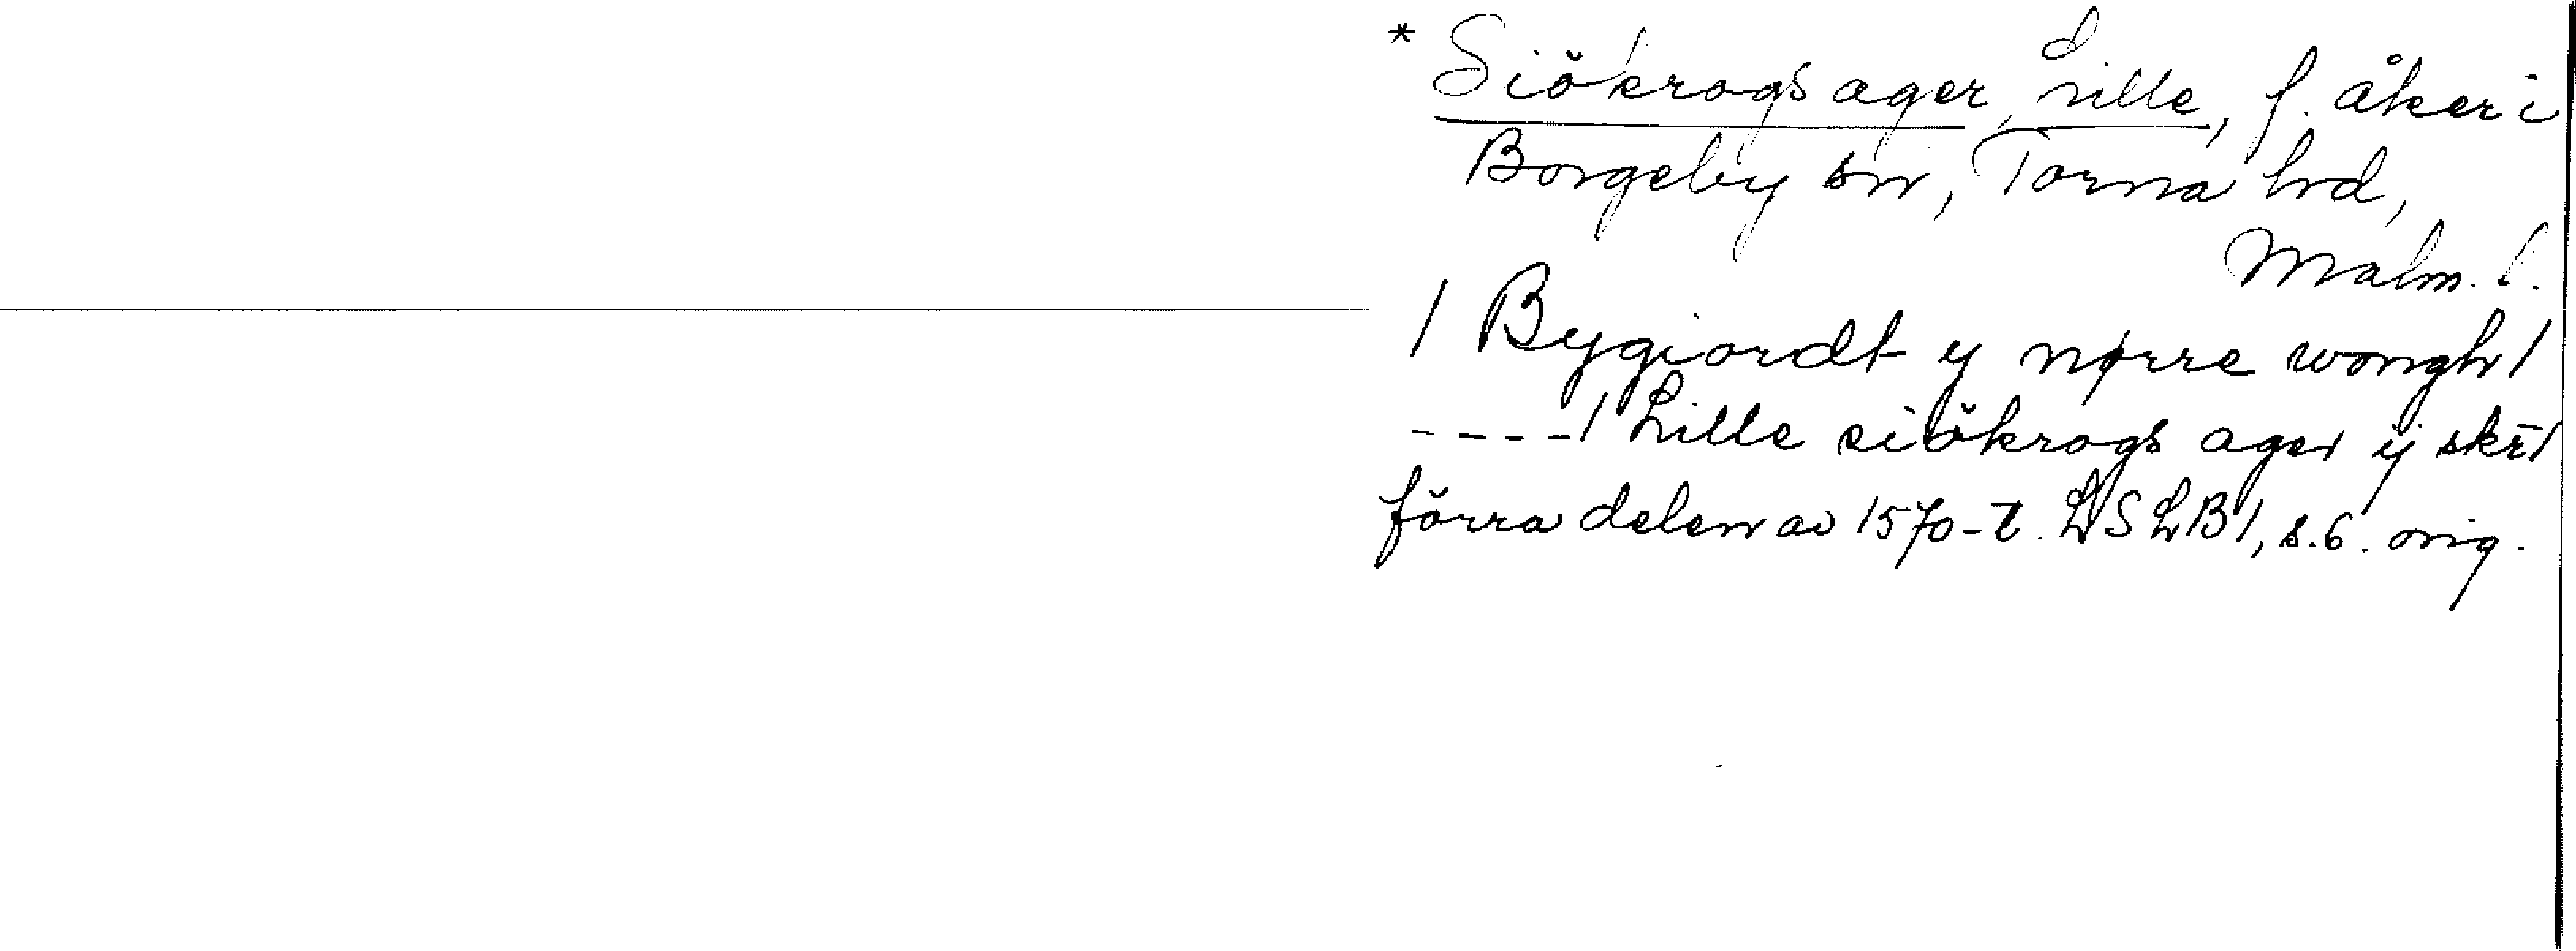 * Siökrogs ager, Lille, f. åker i
Borgeby sn, Torna hd,
Malm. l.
/ Bygiordt y nørre wongh /
---- / Lille siökrogs ager ij skr̄ /
förra delen av 1570-t. LSLB 1, s. 6. orig.